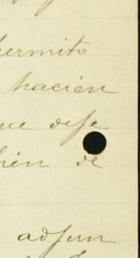 ermito
hacien
ue deje
bien de
adjun